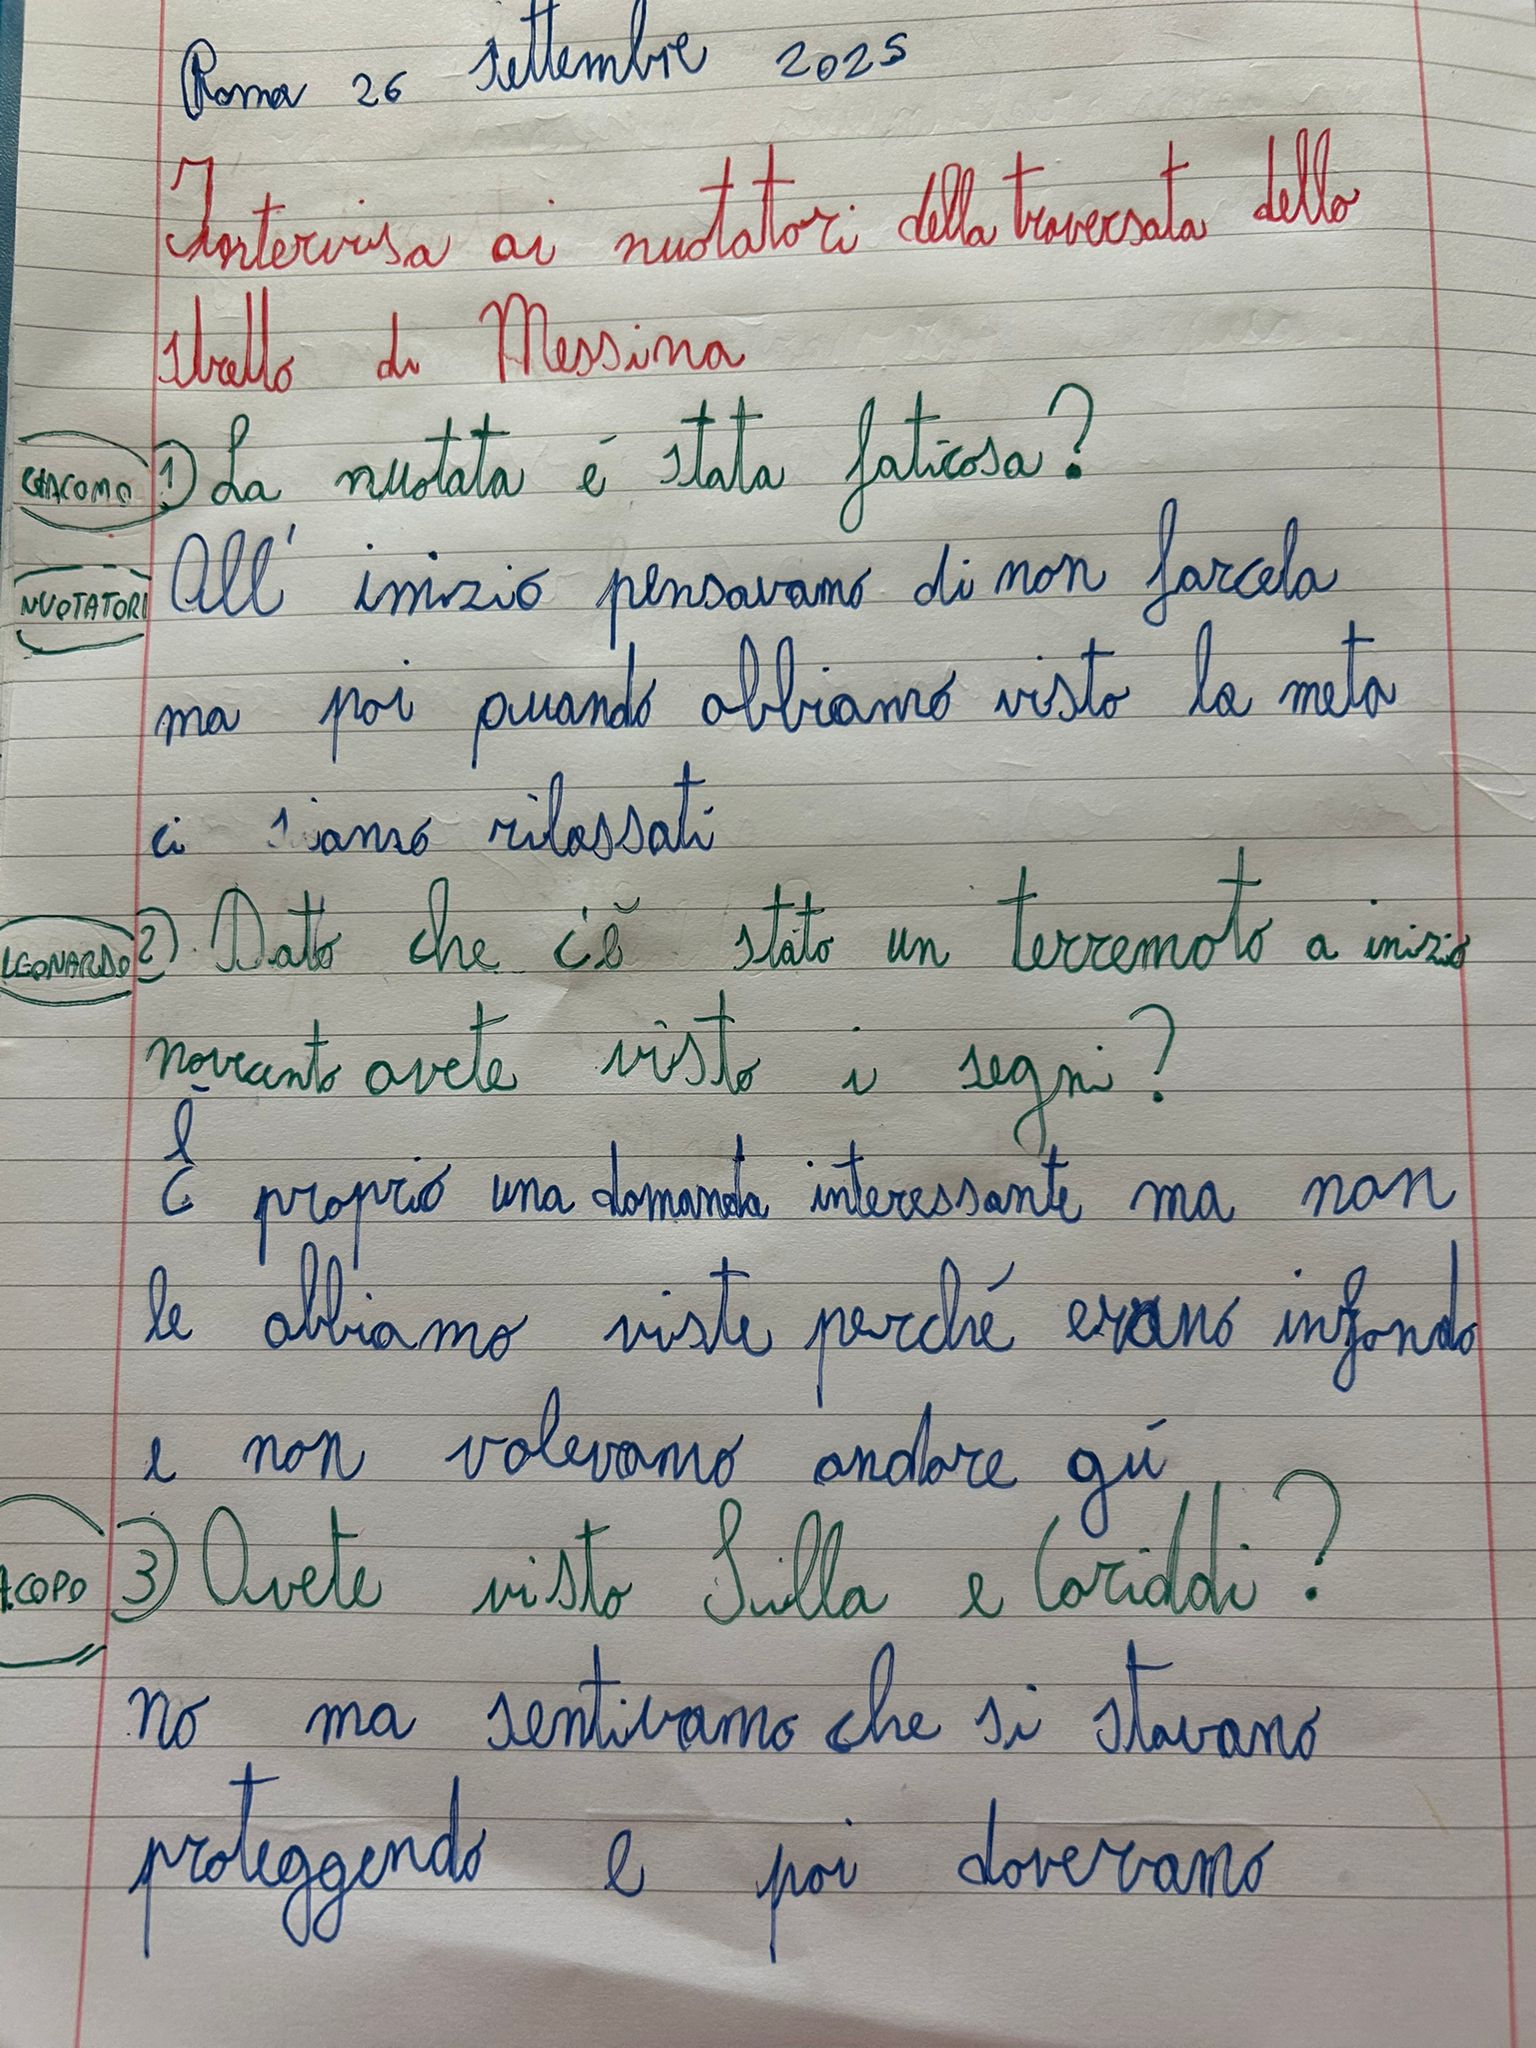 Roma 26 settembre 2025
Intervisa ai nuotatori della traversata dello
stretto di Messina
GIACOMO 1) La nuotata é stata faticosa?
NUOTATORI All' inizio pensavamo di non farcela
ma poi quando abbiamo visto la meta
ci siamo rilassati
LEONARDO 2) Dato che c'è stato un terremoto a inizio
novecento avete visto i segni?
È proprio una domanda interessante ma non
le abbiamo viste perché erano infondo
e non volevamo andare gú
ACOPO 3) Avete visto Scilla e Cariddi?
no ma sentivamo che si stavano
proteggendo e poi dovevamo